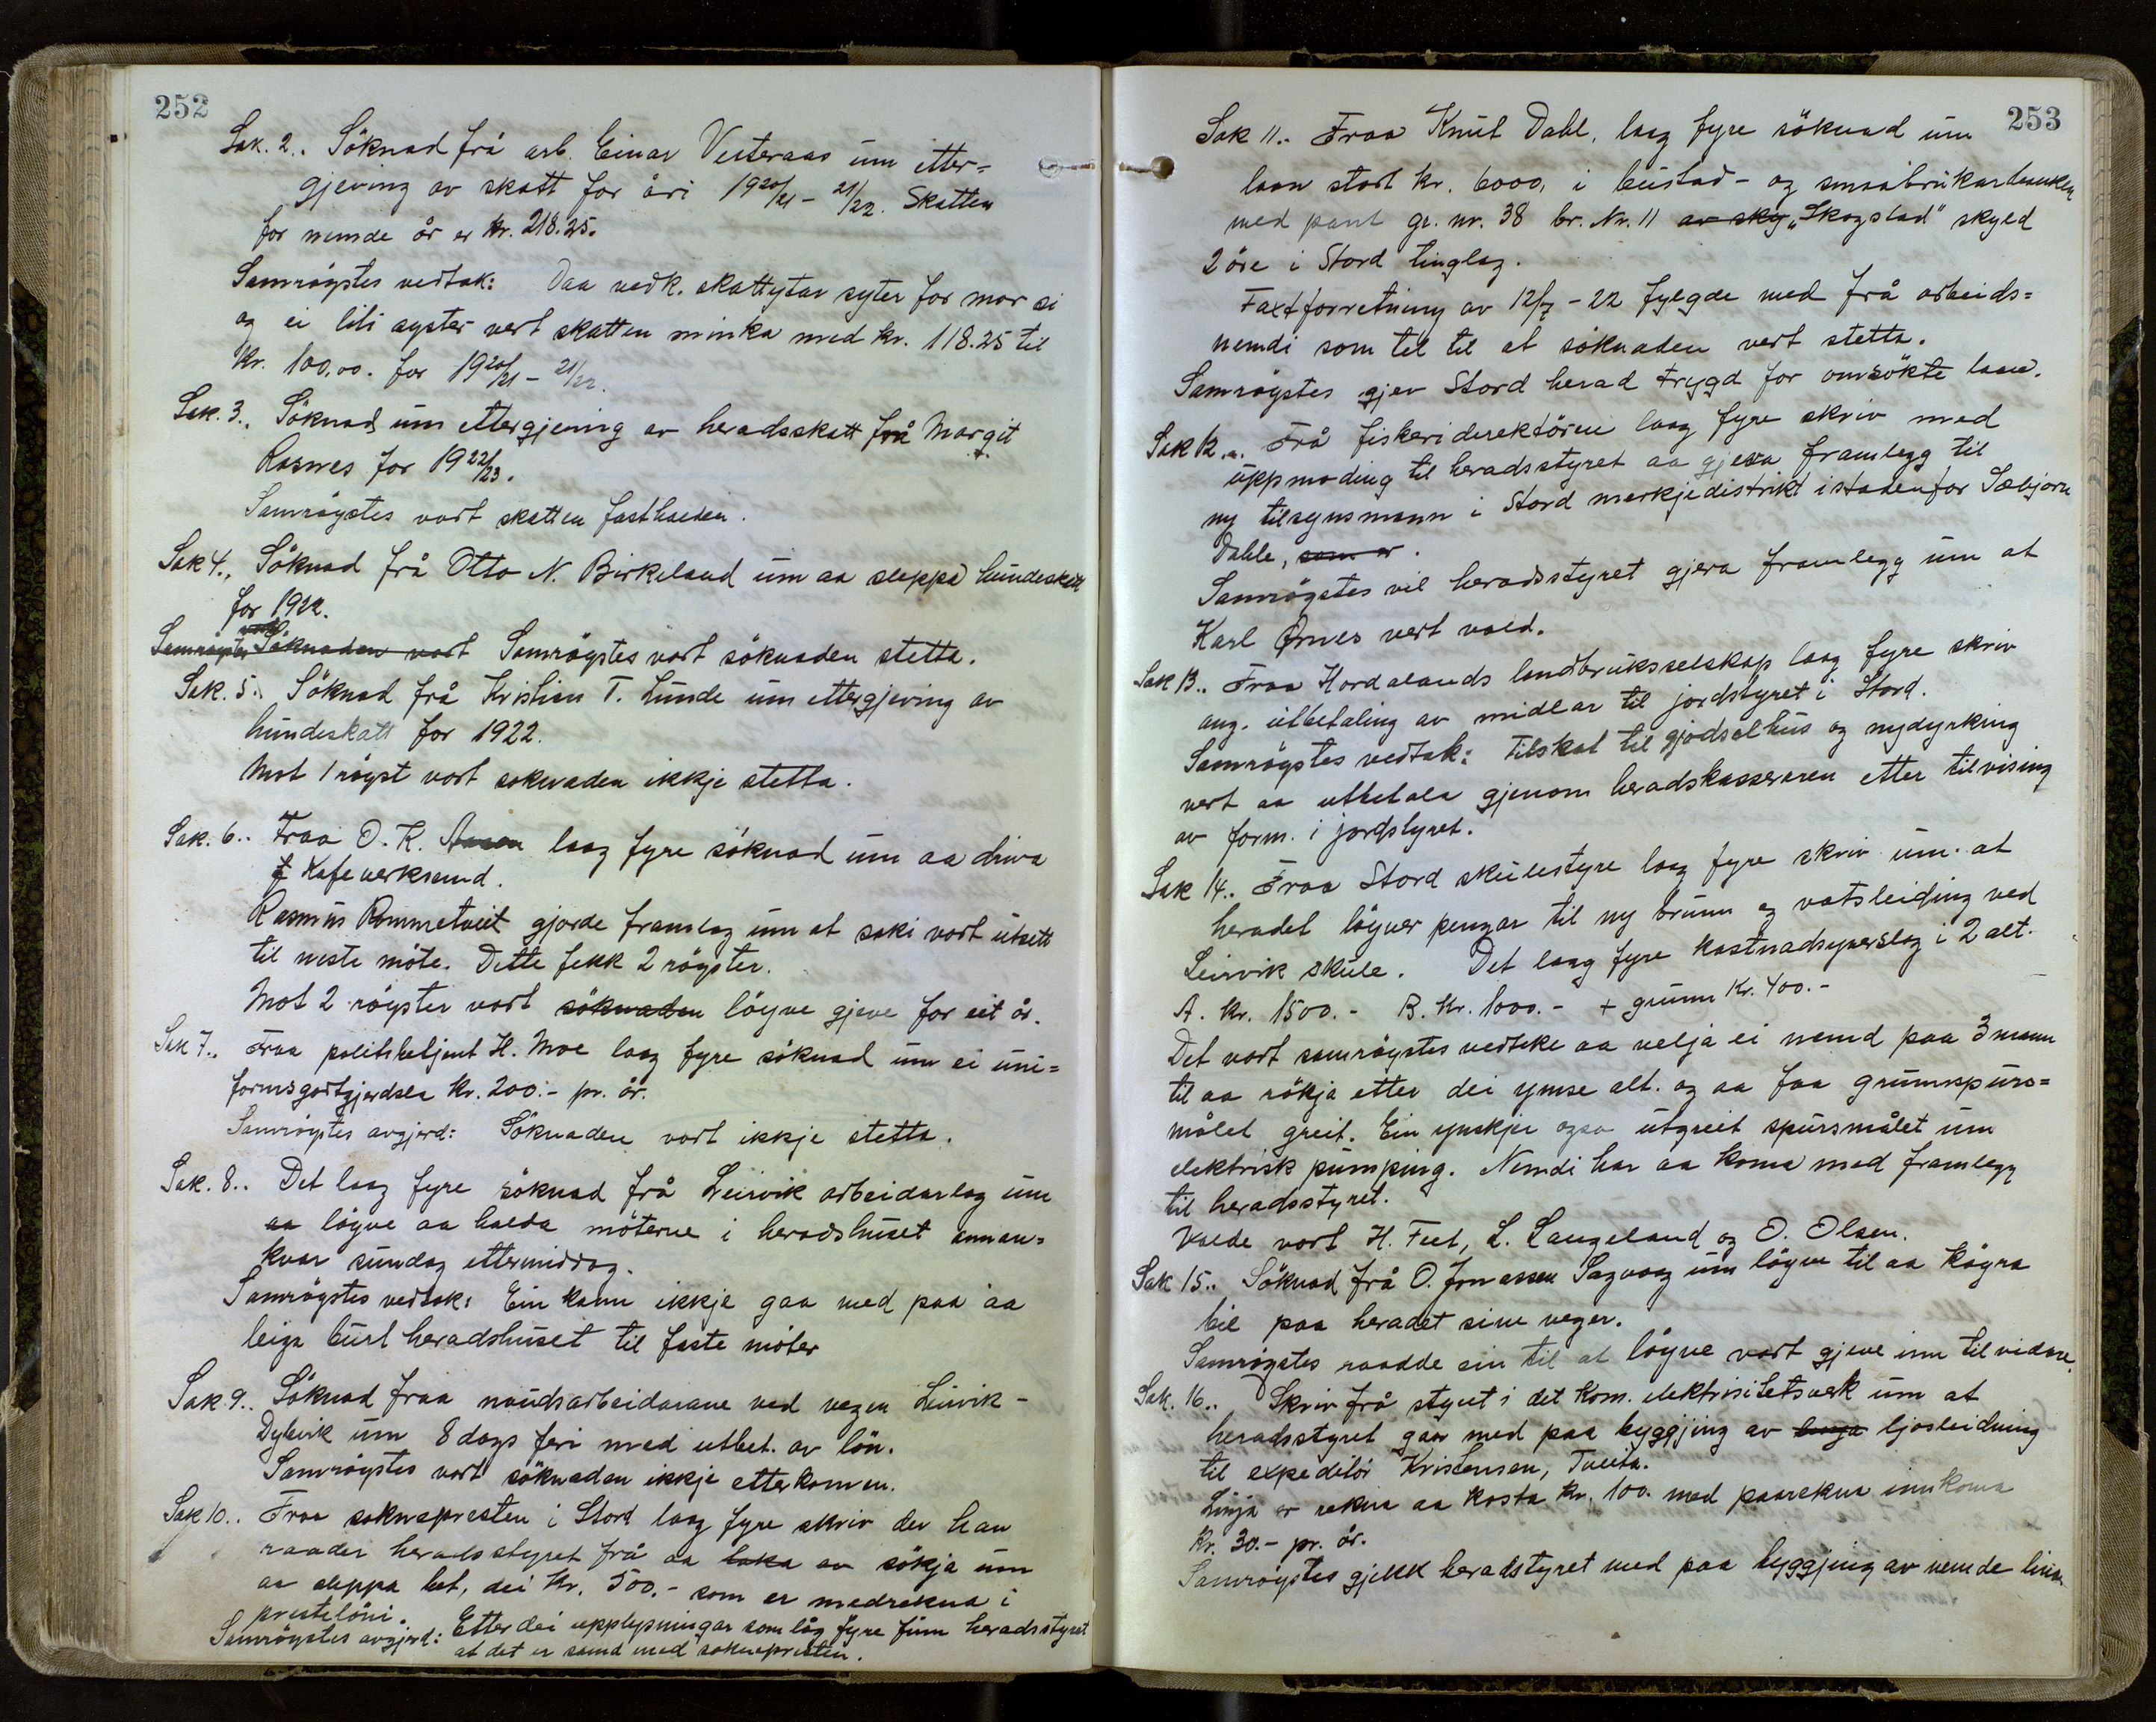 252
Sak. 2.. Söknad frå arb. Einar Vesteraas um etter=
gjeving av skatt for åri 1920/21 - 21/22. Skatten
for nemde år er kr. 218.25.
Samröystes vedtak: Daa vedk. skattytar syter for mor si
og ei liti syster vert skatten minka med kr. 118.25 til
Kr. 100,00. for 1920/21 - 21/22.
Sak. 3.. Söknad um ettergjeving av heradsskatt frå Margit
Rosnes for 1922/23.
Samröystes vart skatten fasthalden.
Sak 4., Söknad frå Otto N. Birkeland um aa sleppa hundeskatt
for 1922.
Samröystes Söknaden vart Samröystes vart söknaden stetta.
Sak. 5.. Söknad frå Kristian T. Lunde um ettergjeving av
hundeskatt for 1922.
Mot 1 röyst vart soknaden ikkje stetta.
Sak. 6.. Fraa O. K. laag fyre söknad um aa driva
Kafeverksemd.
Rasmus Rommetveit gjorde framlag um at saki vart utsett
til neste möte. Dette fekk 2 röyster.
Mot 2 röyster vart söknaden löyve gjeve for eit år.
Sak 7.. Fraa politibetjent H. Moe laag fyre söknad um ei uni=
formsgodtgjerdsla kr. 200.- pr. år.
Samröystes avgjerd: Söknaden vart ikkje stetta.
Sak. 8.. Det laag fyre söknad frå Leirvik arbeidarlag um
aa löyve aa halda möterne i heradshuset annan=
kvar sundag ettermiddag.
Samröystes vedtak: Ein kann ikkje gaa med paa aa
leiga burt heradshuset til faste möter
Sak. 9.. Söknad fraa naudsarbeidarane ved vegen Leirvik -
Dybvik um 8 dags feri med utbet. av lön.
Samröystes vart söknaden ikkje etterkomen.
Sak 10.. Fraa soknepresten i Stord laag fyre skriv der han
raader heradsstyret frå aa taka av sökja um
aa sleppa bet, dei Kr. 500.- som er medrekna i
prestelöni.
Samröystes avgjerd: Etter dei upplysningar som låg fyre finn heradsstyret
at det er samd med soknepresten.
253
Sak 11.. Fraa Knut Dahl, laag fyre söknad um
laan stort kr. 6000, i bustad- og smaabrukarbanken
med pant gr. nr. 38 br. Nr. 11 av sky „Skogstad" skyld
2 öre i Stord tinglag.
Taxtforretning av 12/7 - 22 fylgde med frå arbeids=
nemdi som tel til at söknaden vert stetta.
Samröystes gjev Stord herad trygd for omsökte laan.
Sak 12... Frå fiskeridirektören laag fyre skriv med
uppmoding til heradsstyret aa gjeva framlegg til
ny tilsynsmann i Stord merkjedistrikt istadenfor Sæbjörn
Dahle, som er.
Samröystes vil heradsstyret gjera framlegg um at
Karl Ørnes vert vald.
Sak 13.. Fraa Hordalands landbruksselskap laag fyre skriv
ang. utbetaling av midlar til jordstyret i Stord.
Samröystes vedtak: Tilskot til gjödselhus og nydyrking
vert aa utbetala gjenom heradskasseraren etter tilvising
av form. i jordstyret.
Sak 14.. Fraa Stord skulestyre laag fyre skriv um at
heradet löyver pengar til ny brunn og vatsleiding ved
Leirvik skule. Det laag fyre kostnadsyverslag i 2 alt.
A. kr. 1500.- B. Kr. 1000.- + grunn Kr. 400.-
Det vart samröystes vedteke aa velja ei nemd paa 3 mann
til aa rökja etter dei ymse alt. og aa faa grunnspurs=
målet greit. Ein ynskjer ogso utgreit spursmålet um
elektrisk pumping. Nemdi har aa koma med framlegg
til heradsstyret.
Valde vart H. Feet, L. Langeland og O. Olsen.
Sak 15.. Söknad frå O. Jonassen Sagvaag um löyve til aa köyra
bil paa heradet sine veger.
Samröystes raadde ein til at löyve vart gjeve inn til vidare.
Sak. 16.. Skriv frå styret i det Kom. elektrisitetsverk um at
heradsstyret gaar med paa byggjing av ljosleidning
til expeditör Kristensen, Tveita.
Linja er rekna aa kosta kr. 100. med paarekna innkoma
Kr. 30.- pr. år.
Samröystes gjekk heradstyret med paa byggjing av nemde linja